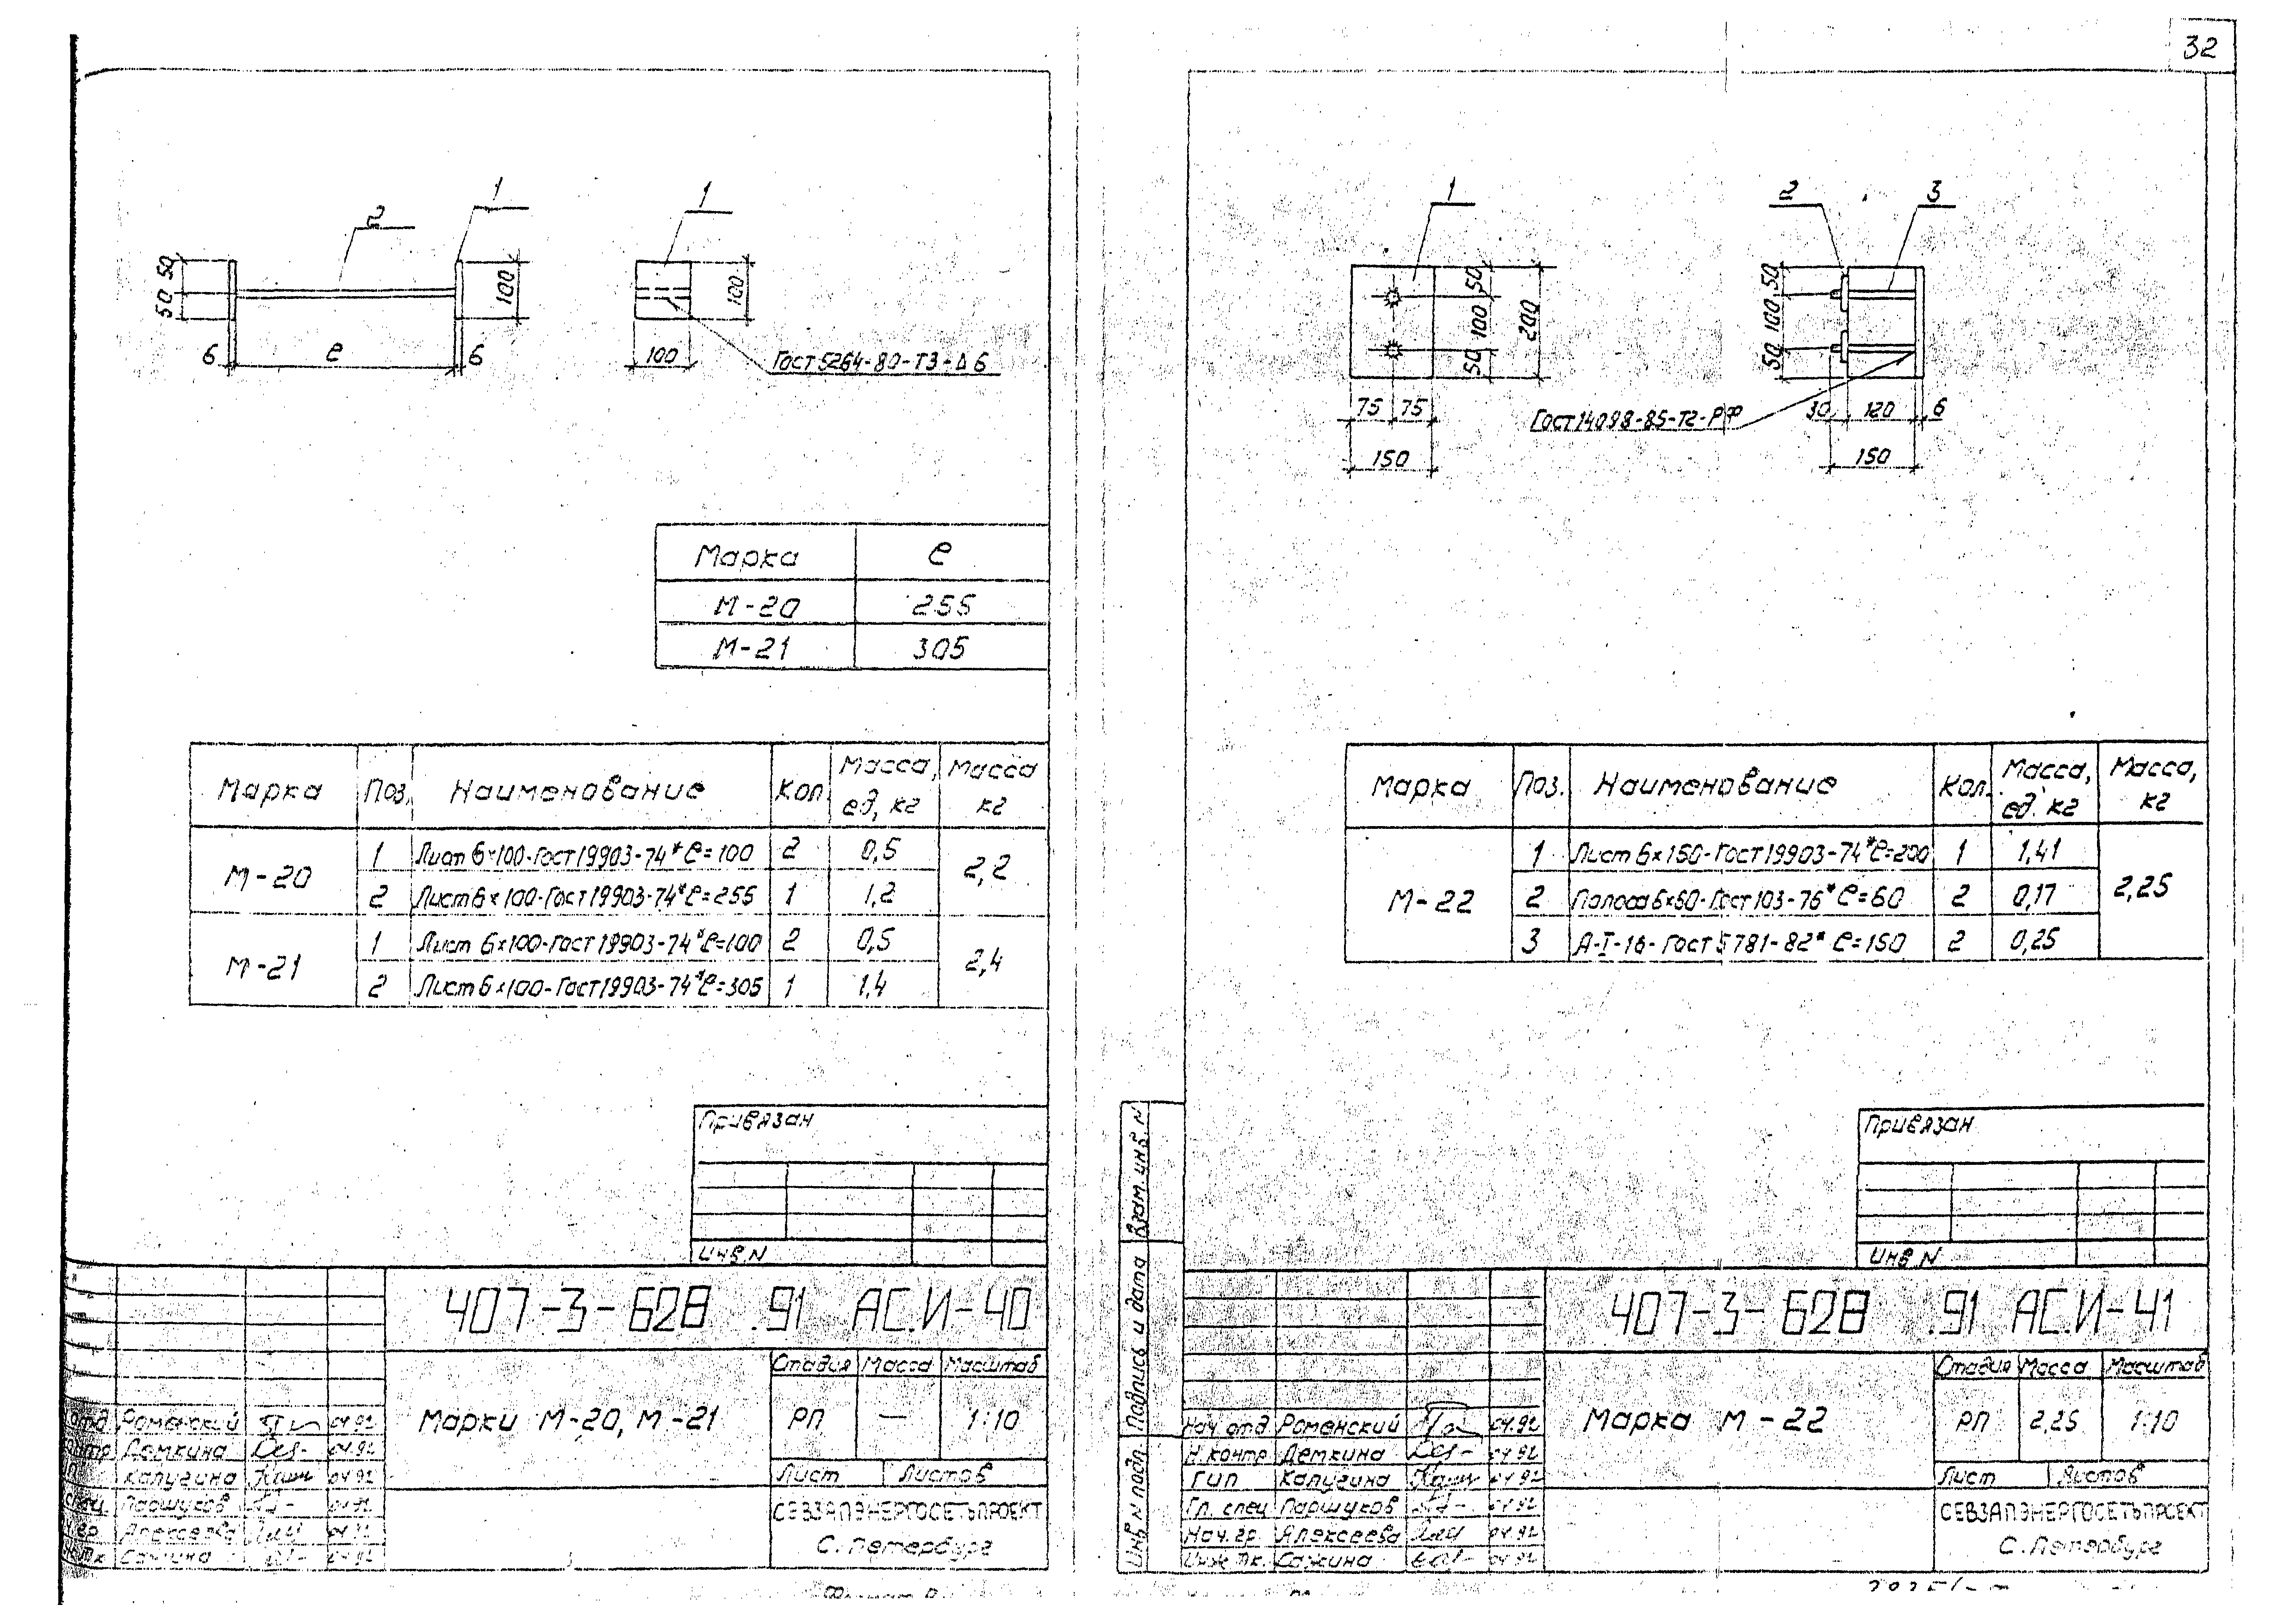 32
1
2
50
50
100
6
е
6
1
100
100
Гост 5264-80-Т3-Δ6
Марка е
М-20 255
М-21 305
Марка Поз. Наименование Кол. Масса, ед, кг Масса кг
М-20 2,2
1 Лист 6×100-Гост 19903-74* е=100 2 0,5
2 Лист 6×100-Гост 19903-74* е=255 1 1,2
М-21 2,4
1 Лист 6×100-Гост 19903-74* е=100 2 0,5
2 Лист 6×100-Гост 19903-74* е=305 1 1,4
Привязан
Инв. N
407-3-628 .91 АС.И-40
Марки М-20, М-21
Стадия Масса Масштаб
РП — 1:10
Лист Листов
СЕВЗАПЭНЕРГОСЕТЬПРОЕКТ
С. Петербург
отд Роменский 04.92
контр Демкина 04.92
Калугина 04.92
спец Паршуков 04.92
гр. Алексеева 04.92
Сажина 04.92
1
50
100
50
200
75 75
150
2
3
50
100
50
30 120 6
150
Гост 14098-85-Т2-РФ
Марка Поз. Наименование Кол. Масса, ед. кг Масса, кг
М-22 2,25
1 Лист 6×150-Гост 19903-74* е=200 1 1,41
2 Полоса 6×60-Гост 103-76* е=60 2 0,17
3 А-I-16-Гост 5781-82* е=150 2 0,25
Привязан
Инв. N
Взам. инв. N
Подпись и дата
Инв. N подп.
407-3-628 .91 АС.И-41
Марка М-22
Стадия Масса Масштаб
РП 2,25 1:10
Лист Листов
СЕВЗАПЭНЕРГОСЕТЬПРОЕКТ
С. Петербург
Нач. отд Роменский 04.92
Н. контр Демкина 04.92
ГИП Калугина 04.92
Гл. спец Паршуков 04.92
Нач. гр. Алексеева 04.92
Инж. IIк. Сажина 04.92